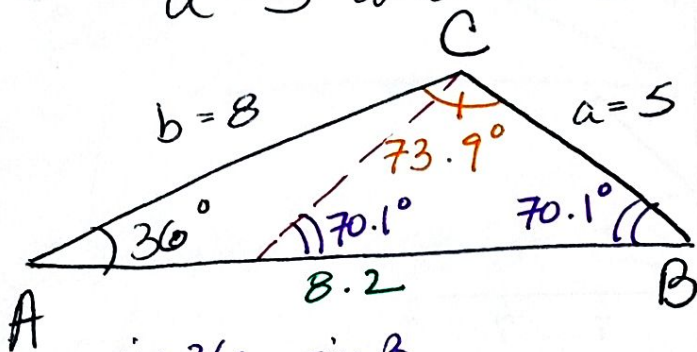 C
b = 8
a = 5
73.9°
36°
70.1°
70.1°
8.2
A
B